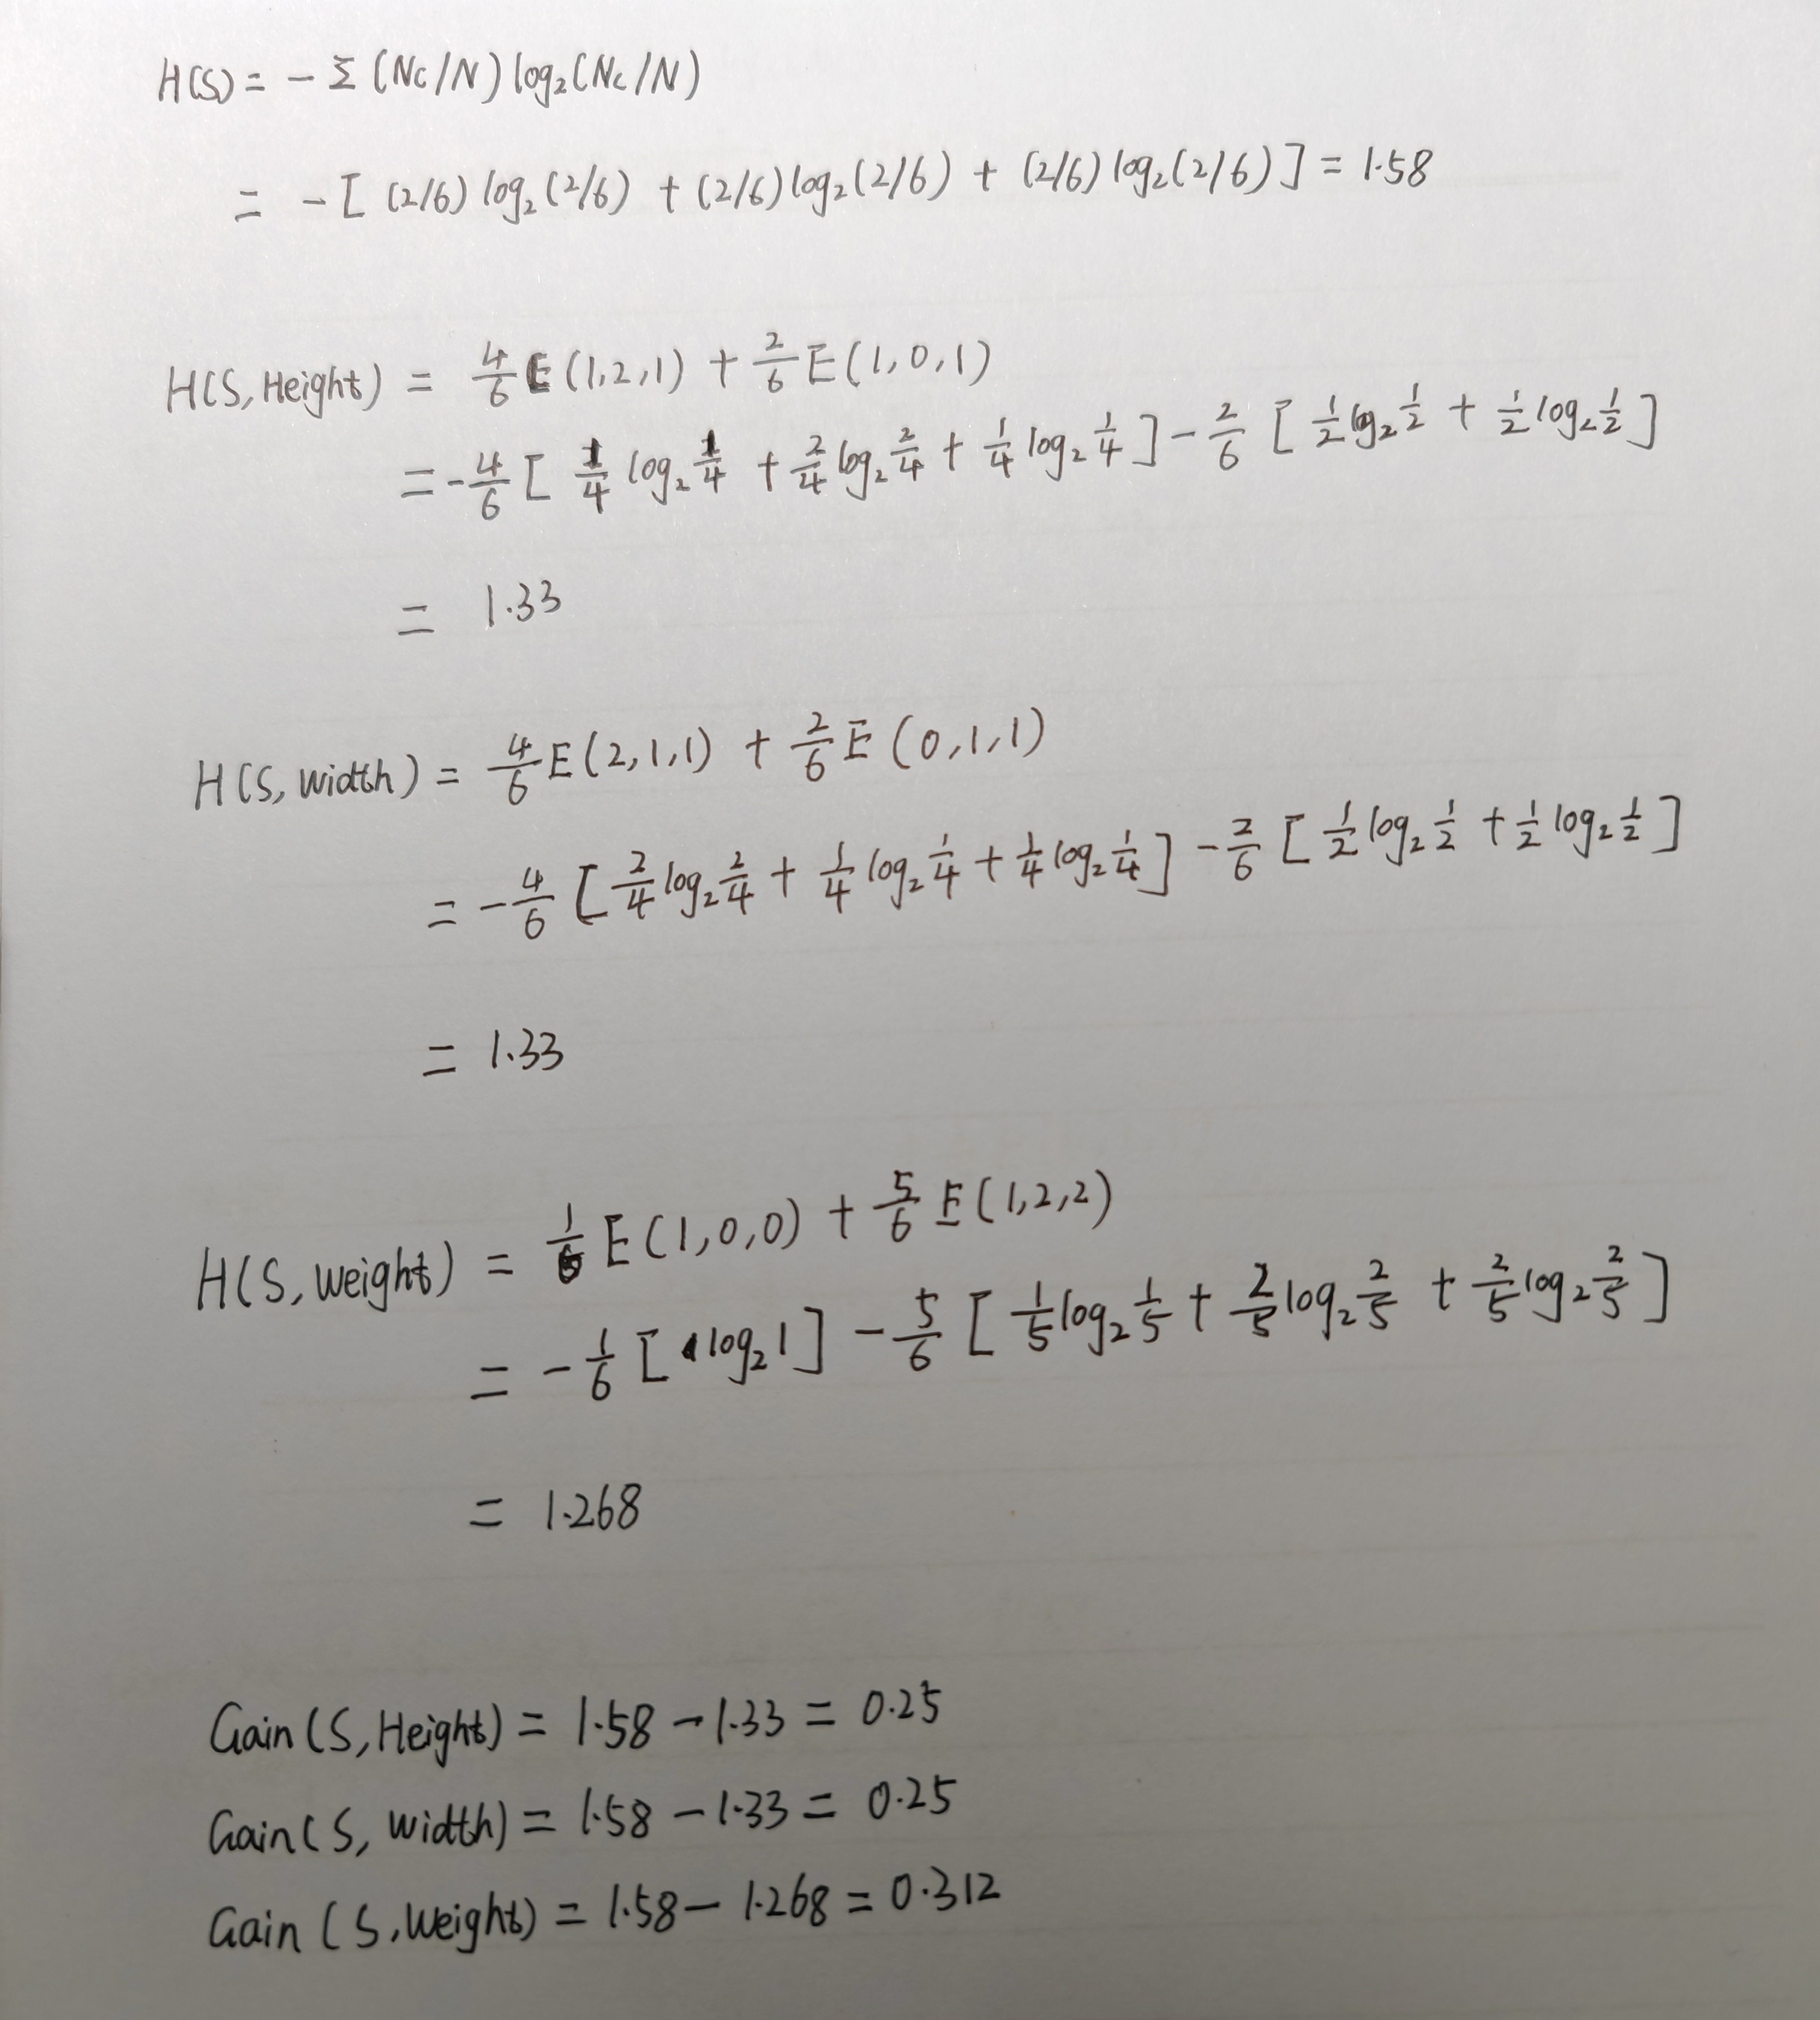 H(S) = - Σ (Nc/N) log₂(Nc/N)
= - [ (2/6) log₂(2/6) + (2/6) log₂(2/6) + (2/6) log₂(2/6) ] = 1.58
H(S, Height) = 4/6 E(1,2,1) + 2/6 E(1,0,1)
= - 4/6 [ 1/4 log₂ 1/4 + 2/4 log₂ 2/4 + 1/4 log₂ 1/4 ] - 2/6 [ 1/2 log₂ 1/2 + 1/2 log₂ 1/2 ]
= 1.33
H(S, Width) = 4/6 E(2,1,1) + 2/6 E(0,1,1)
= - 4/6 [ 2/4 log₂ 2/4 + 1/4 log₂ 1/4 + 1/4 log₂ 1/4 ] - 2/6 [ 1/2 log₂ 1/2 + 1/2 log₂ 1/2 ]
= 1.33
H(S, Weight) = 1/6 E(1,0,0) + 5/6 E(1,2,2)
= - 1/6 [ 1 log₂ 1 ] - 5/6 [ 1/5 log₂ 1/5 + 2/5 log₂ 2/5 + 2/5 log₂ 2/5 ]
= 1.268
Gain(S, Height) = 1.58 - 1.33 = 0.25
Gain(S, Width) = 1.58 - 1.33 = 0.25
Gain(S, Weight) = 1.58 - 1.268 = 0.312